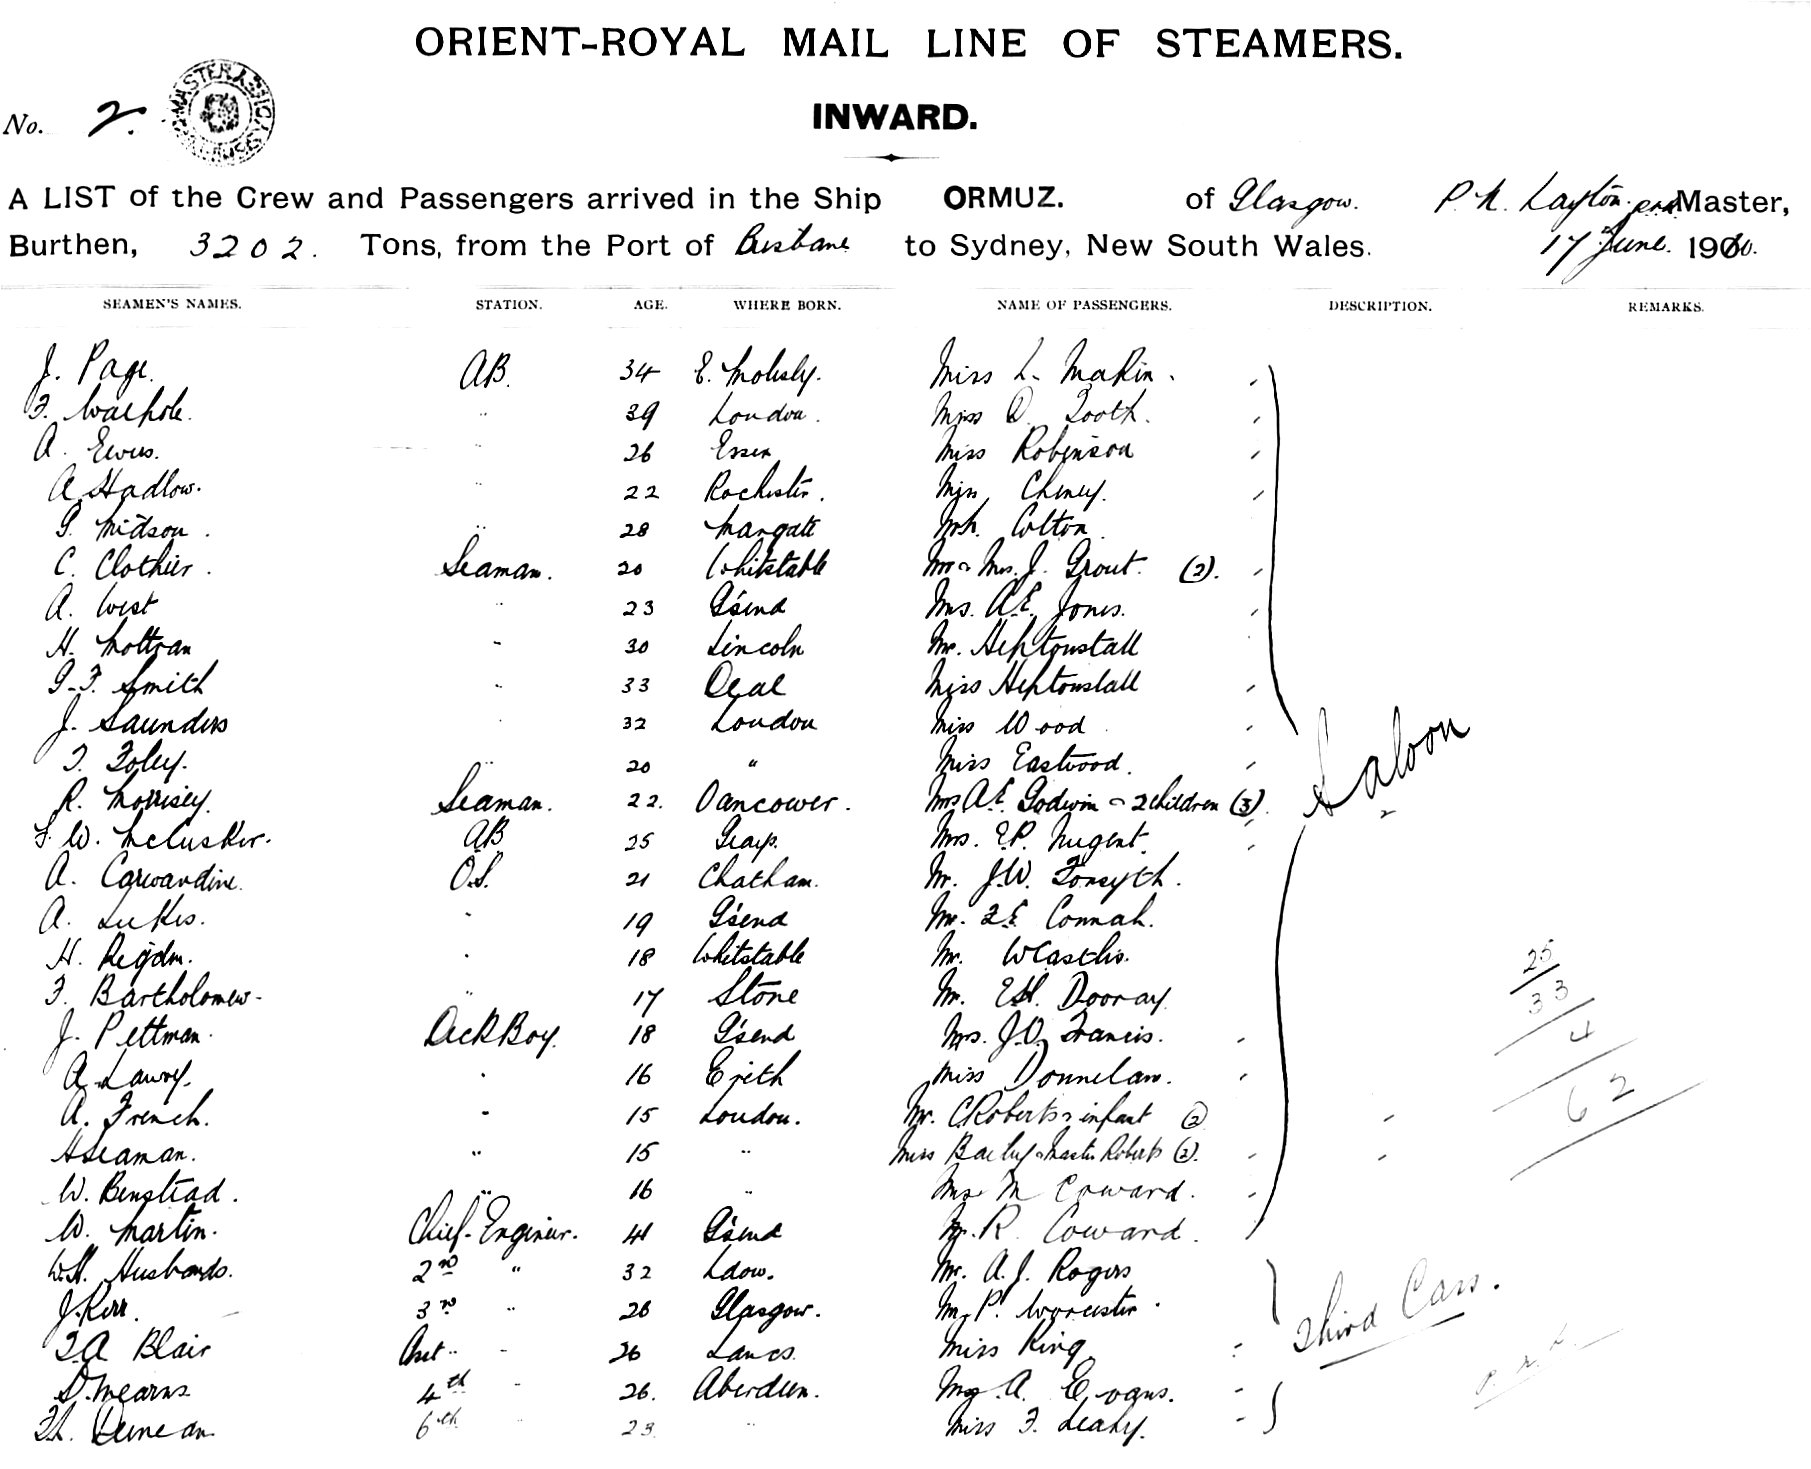 ORIENT-ROYAL MAIL LINE OF STEAMERS.
No. 2.
INWARD.
A LIST of the Crew and Passengers arrived in the Ship ORMUZ. of Glasgow. P. N. Layton Master,
Burthen, 3202. Tons, from the Port of Brisbane to Sydney, New South Wales. 17 June. 1900.
SEAMEN'S NAMES. STATION. AGE. WHERE BORN. NAME OF PASSENGERS. DESCRIPTION. REMARKS.
J. Page. AB. 34 E. Molesly. Miss L. Makin.
F. Walpole. " 39 London. Miss D. Tooth.
A. Ewers. " 26 Essex Miss Robinson
A. Hadlow. " 22 Rochester. Miss Cheney.
G. Midson. " 28 Margate Mr. Colton.
C. Clothier. Seaman. 20 Whitstable Mr & Mrs. J. Grout. (2).
A. West " 23 G'send Mrs. A.E. Jones.
H. Moltran " 30 Lincoln Mr. Heptonstall
G.F. Smith " 33 Deal Miss Heptonstall
J. Saunders " 32 London Miss Wood
T. Foley. " 20 " Miss Eastwood.
R. Morrisey. Seaman. 22. Vancower. Mrs A.E. Godwin & 2 children (3).
W. McCusker. AB 25 Grays. Mrs. E.P. Nugent.
A. Carwardine. O.S. 21 Chatham. Mr. J.W. Forsyth.
A. Lukes. " 19 G'send Mr. F.E. Connah.
H. Rigdm. " 18 Whitstable Mr. W Castles.
F. Bartholomew. " 17 Stone Mr. E.H. Dooray.
J. Pettman. Deck Boy. 18 G'send Mrs. J.O. Francis.
A. Lawry. " 16 Erith Miss Donnelan.
A. French. " 15 London. Mr. C. Roberts & infant (2)
H Seaman. " 15 " Miss Bailey & Master Roberts (2).
W. Benstead. " 16 " M Coward.
W. Martin. Chief Enginier. 41 G'send R Coward.
W.H. Husbands. 2nd " 32 Ldow. Mr. A. J. Rogers
J. Kerr. 3rd " 26 Glasgow. P. Worcester.
F A Blair Asst " 26 Lancs. Miss King
D. Mearns 4th " 26. Aberdeen. A. Evans.
Duncan 6th " 23. " Miss F. Leahy.
Saloon
25
33
4
62
Third Cass.